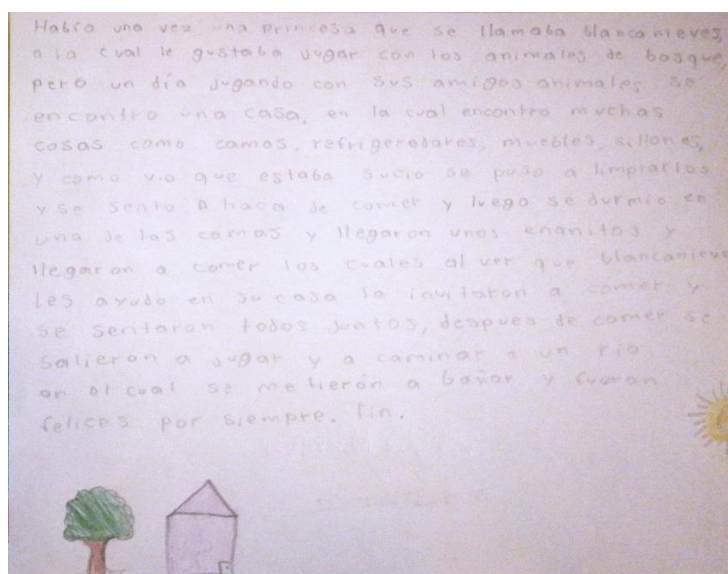 Había una vez una princesa que se llamaba blancanieves
a la cual le gustaba jugar con los animales de bosque,
pero un día jugando con sus amigos animales se
encontro una casa, en la cual encontro muchas
cosas como camas, refrigeredores, muebles, sillones,
y como vio que estaba sucio se puso a limpiarlos
y se sento a hacer de comer y luego se durmio en
una de las camas y llegaron unos enanitos y
llegaron a comer los cuales al ver que blancanieve
les ayudo en su casa la invitaron a comer y
se sentaron todos juntos, despues de comer se
salieron a jugar y a caminar a un rio
en el cual se metierón a bañar y fueron
felices por siempre. fin.